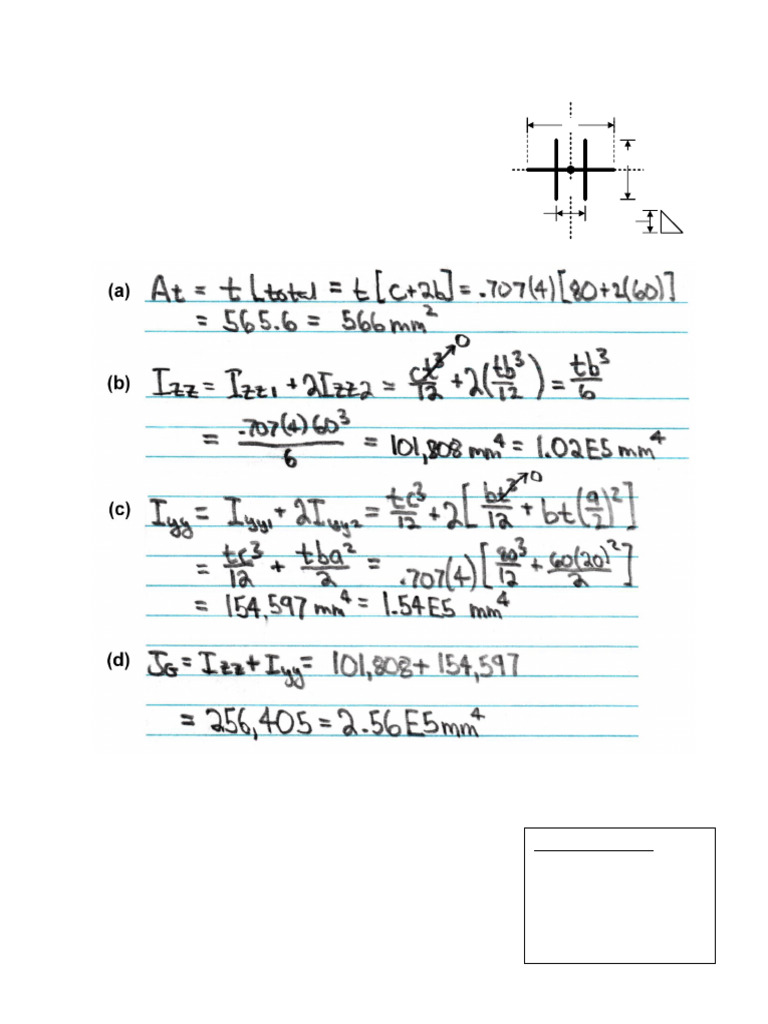 (a) At = t Ltotal = t[c+2b] = .707(4)[80+2(60)]
= 565.6 = 566 mm²
(b) Izz = Izz1 + 2Izz2 = ct³/12 → 0 + 2(tb³/12) = tb³/6
= .707(4)60³/6 = 101,808 mm⁴ = 1.02E5 mm⁴
(c) Iyy = Iyy1 + 2Iyy2 = tc³/12 + 2[bt³/12 → 0 + bt(a/2)²]
= tc³/12 + tba²/2 = .707(4)[80³/12 + 60(20)²/2]
= 154,597 mm⁴ = 1.54E5 mm⁴
(d) JG = Izz + Iyy = 101,808 + 154,597
= 256,405 = 2.56E5 mm⁴